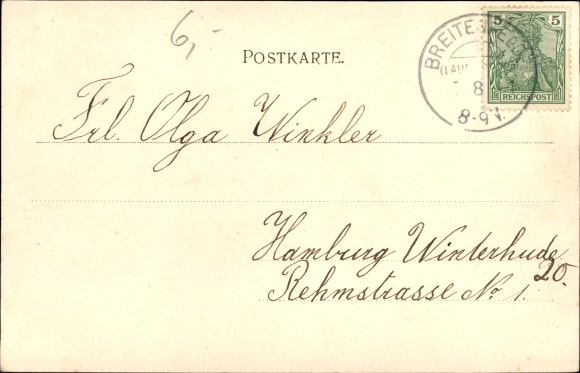 6,-
POSTKARTE.
5 5
REICHSPOST
8
8-9 V.
Frl. Olga Winkler
Hamburg Winterhude
20.
Rehmstrasse No 1.